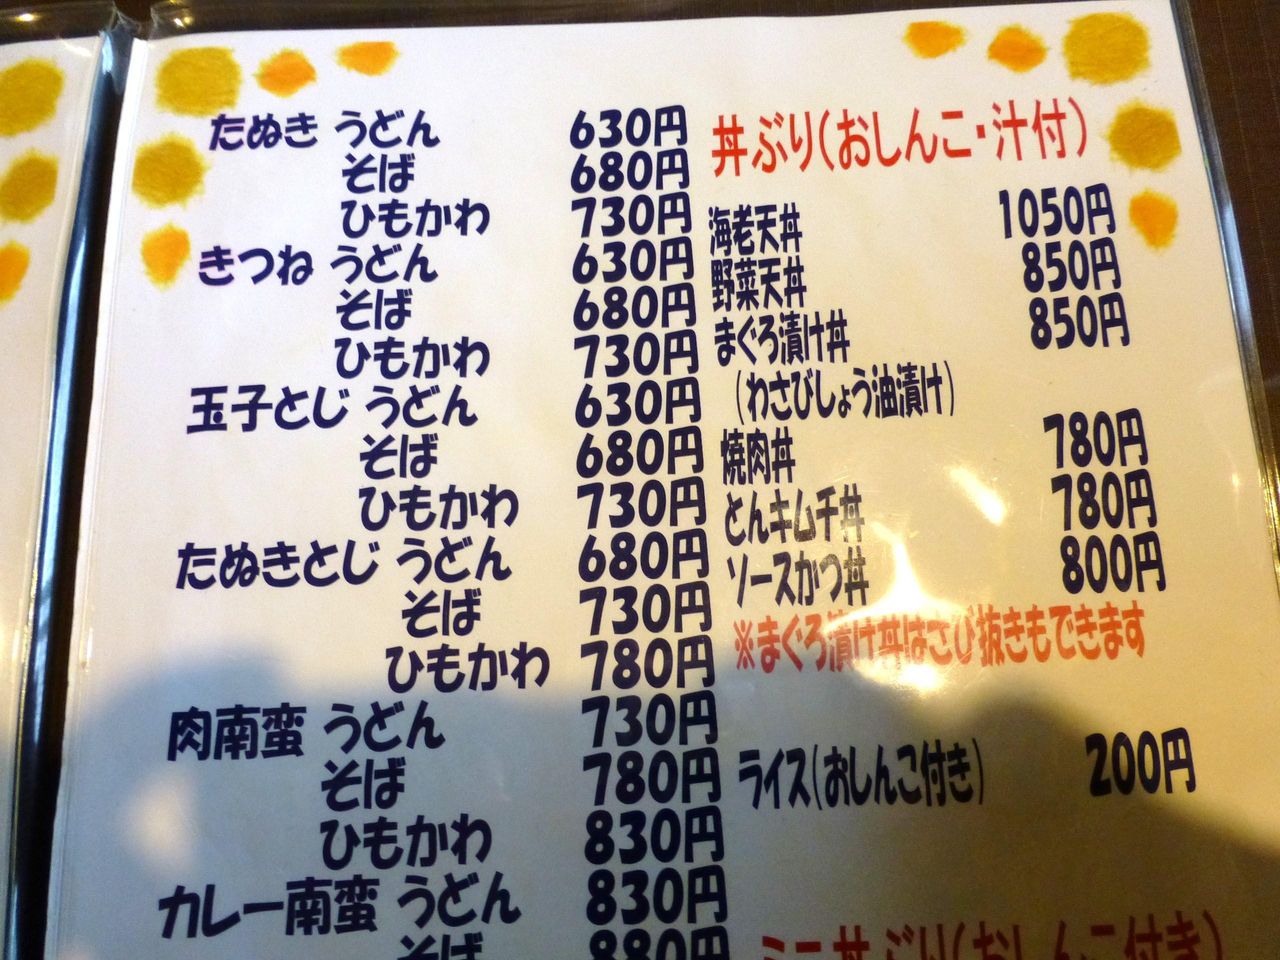 たぬき うどん 630円
そば 680円
ひもかわ 730円
きつね うどん 630円
そば 680円
ひもかわ 730円
玉子とじ うどん 630円
そば 680円
ひもかわ 730円
たぬきとじ うどん 680円
そば 730円
ひもかわ 780円
肉南蛮 うどん 730円
そば 780円
ひもかわ 830円
カレー南蛮 うどん 830円
そば 880円
丼ぶり(おしんこ・汁付)
海老天丼 1050円
野菜天丼 850円
まぐろ漬け丼 850円
(わさびしょう油漬け)
焼肉丼 780円
とんキムチ丼 780円
ソースかつ丼 800円
※まぐろ漬け丼はさび抜きもできます
ライス(おしんこ付き) 200円
ミニ丼ぶり(おしんこ付き)